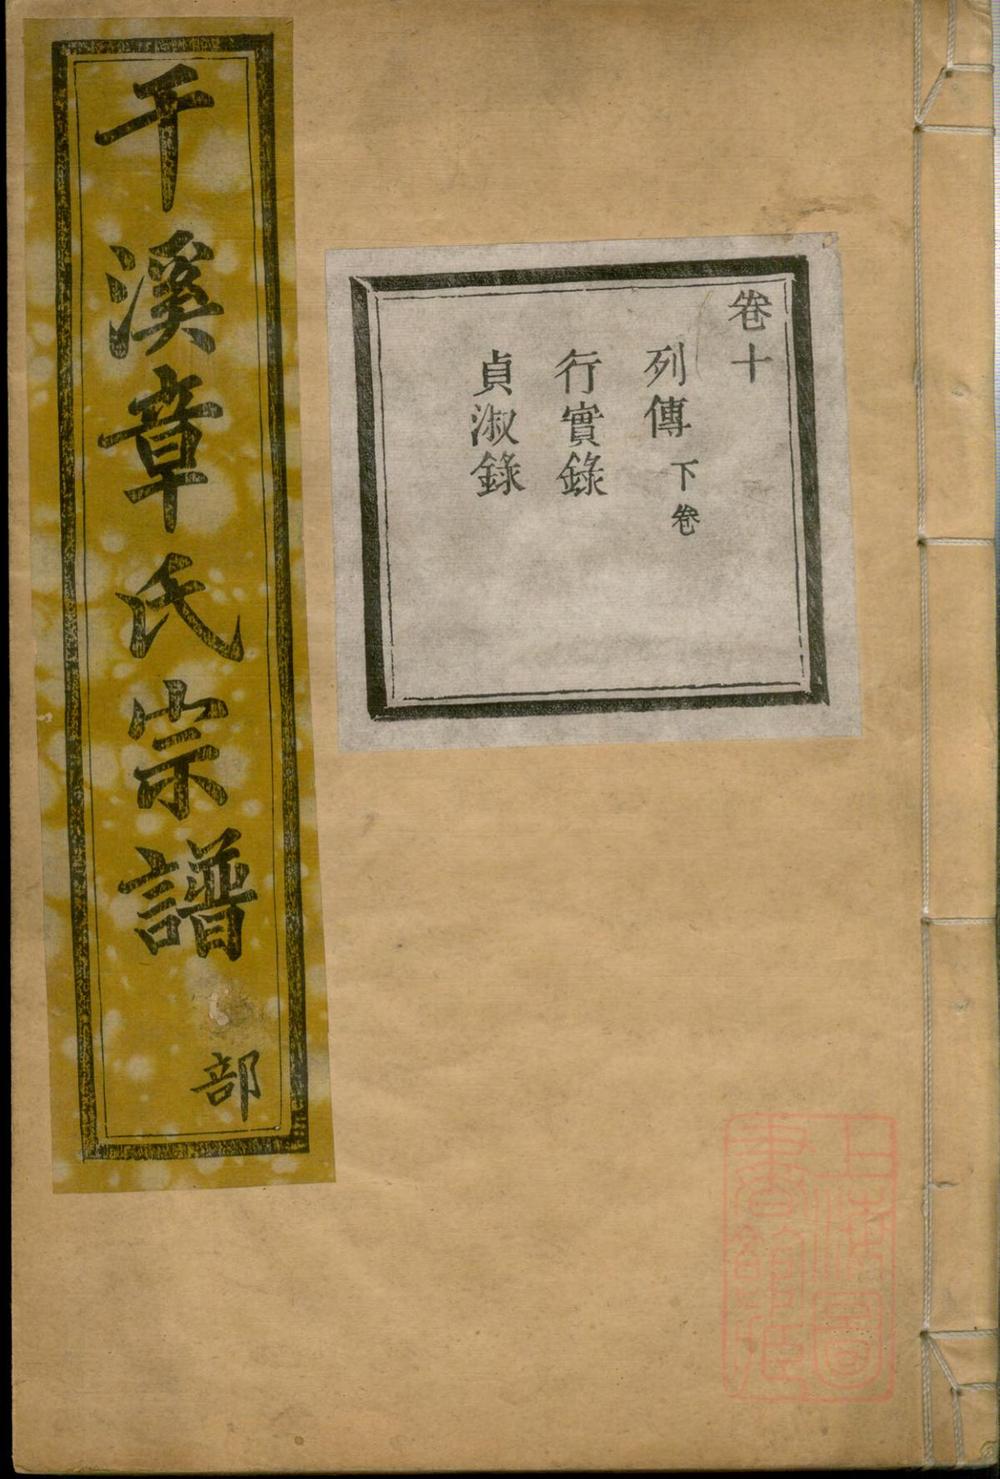 卷十
列傳 下卷
行實錄
貞淑錄
干溪章氏宗譜
部
上海圖
書館藏